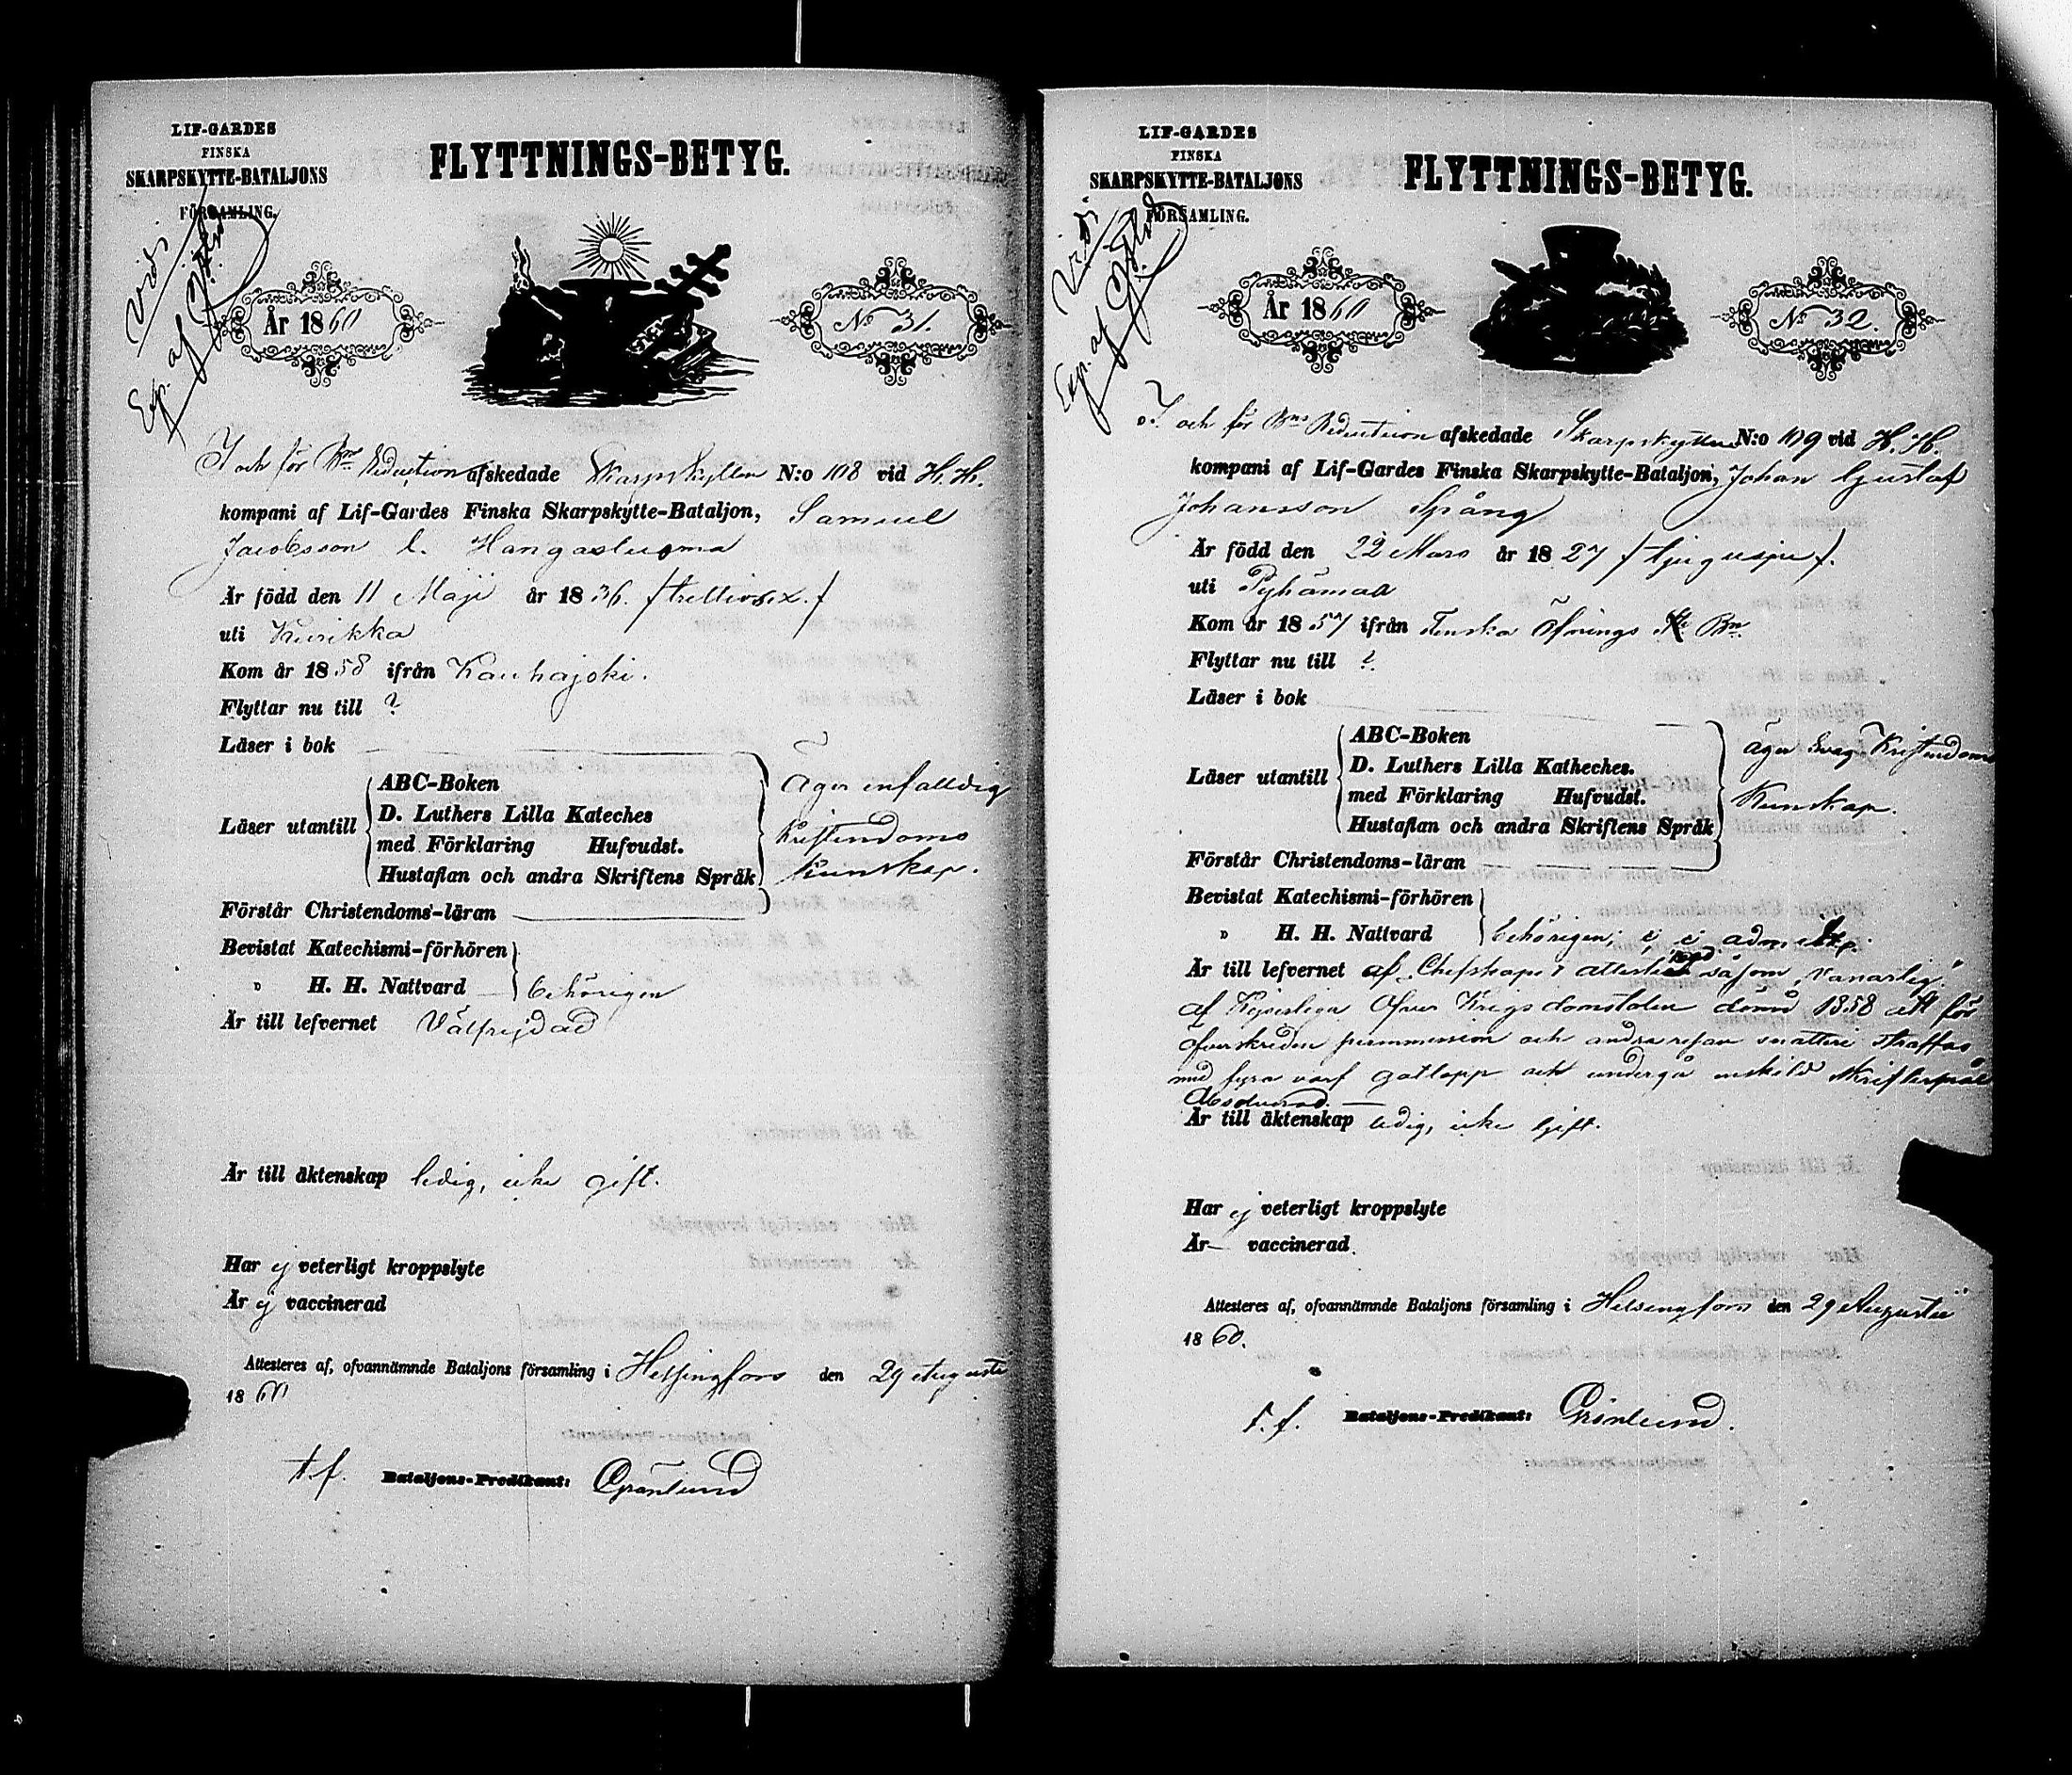 LIF-GARDES
FINSKA
SKARPSKYTTE-BATALJONS
FÖRSAMLING.
FLYTTNINGS-BETYG.
Vidi
Exp. af
År 1860
No 31.
I och för Bns Reduction afskedade Skarpskytten N:o 108 vid H. H.
kompani af Lif-Gardes Finska Skarpskytte-Bataljon, Samuel
Jacobsson l. Hangasluoma
Är född den 11 Maji år 1836. /trettiosex./
uti Kurikka
Kom år 1858 ifrån Kauhajoki.
Flyttar nu till ?
Läser i bok
Läser utantill
ABC-Boken
D. Luthers Lilla Kateches
med Förklaring Hufvudst.
Hustaflan och andra Skriftens Språk
Äger enfalldig
Kristendoms
kunskap.
Förstår Christendoms-läran
Bevistat Katechismi-förhören
" H. H. Nattvard behörigen
Är till lefvernet Välfrejdad
Är till äktenskap ledig, icke gift.
Har ej veterligt kroppslyte
Är ej vaccinerad
Attesteres af, ofvannämnde Bataljons församling i Helsingfors den 29 Augusti
1860
t.f. Bataljons-Predikant: Grönlund
LIF-GARDES
FINSKA
SKARPSKYTTE-BATALJONS
FÖRSAMLING.
FLYTTNINGS-BETYG.
Vidi
Exp. af
År 1860
No 32.
I och för Bns Reduction afskedade Skarpskytten N:o 109 vid H. H.
kompani af Lif-Gardes Finska Skarpskytte-Bataljon, Johan Gustaf
Johansson Spång
Är född den 22 Mars år 1827 /tjugusju/.
uti Pyhämaa
Kom år 1857 ifrån Finska Öfnings Bn.
Flyttar nu till ?
Läser i bok
Läser utantill
ABC-Boken
D. Luthers Lilla Katheches.
med Förklaring Hufvudst.
Hustaflan och andra Skriftens Språk
äger svag Kristendoms
Kunskap.
Förstår Christendoms-läran
Bevistat Katechismi-förhören
" H. H. Nattvard behörigen;
Är till lefvernet af Chefskapet såsom "vanartig."
af Kejserliga Öfver Krigsdomstolen dömd 1858 att för
öfverskriden permission och andra resan snatteri straffas
med fyra varf gatlopp och undergå enskild skriftermål
Absolverad.
Är till äktenskap ledig, icke gift.
Har ej veterligt kroppslyte
Är vaccinerad
Attesteres af, ofvannämnde Bataljons församling i Helsingfors den 29 Augusti
1860.
t.f. Bataljons-Predikant: Grönlund.